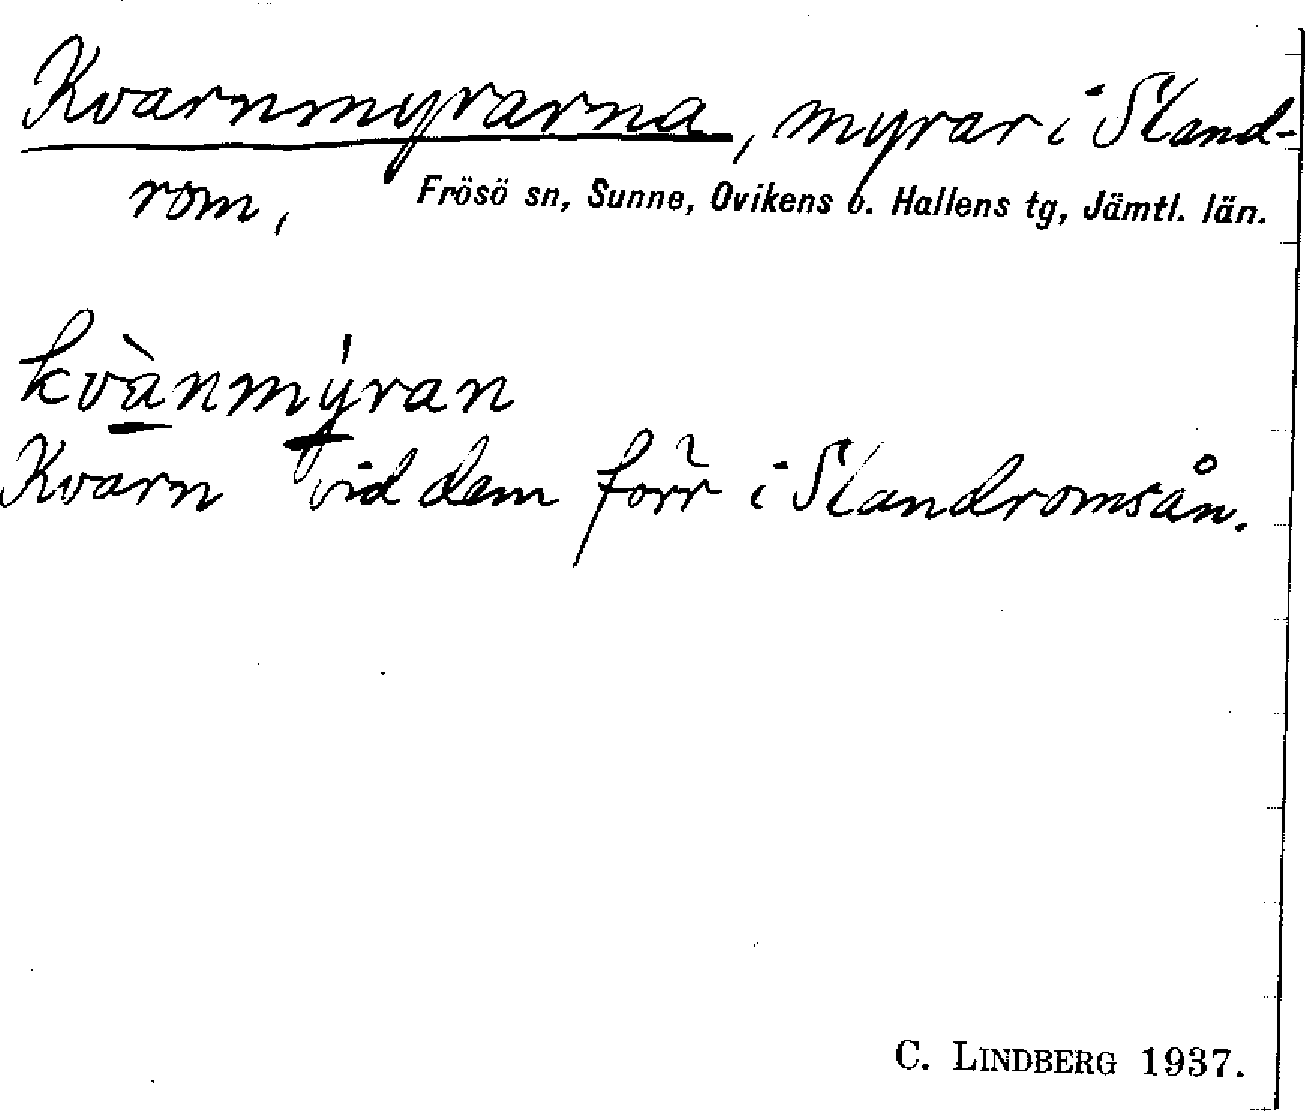 Kvarnmyrarna, myrar i Sland-
rom, Frösö sn, Sunne, Ovikens o. Hallens tg, Jämtl. län.
kvànmýran
Kvarn vid dem förr i Slandromsån.
C. LINDBERG 1937.